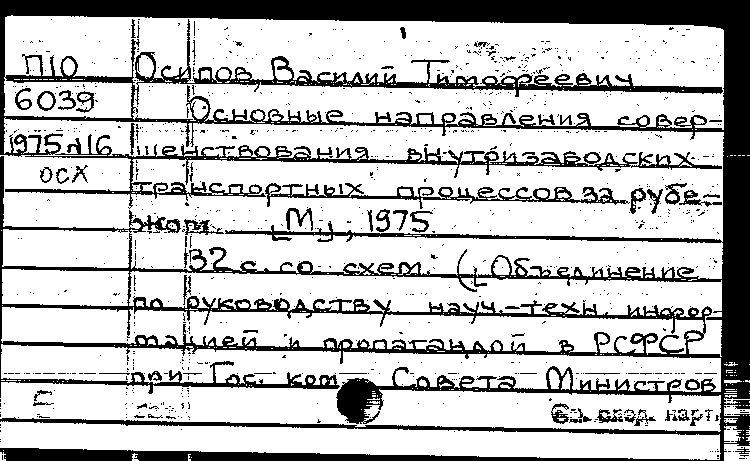 П10 Осипов, Василий Тимофеевич
6039 Основные направления совер-
1975л16 шенствования внутризаводских
ОСХ транспортных процессов за рубе-
жом. [М], 1975.
32 с. со схем. ([Объединение
по руководству науч.-техн. инфор-
мацией и пропагандой в РСФСР
при Гос. ком. Совета Министров
След. карт.